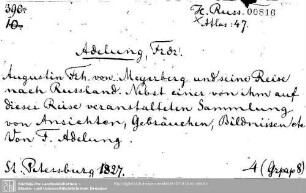 390. H. Russ. 00816
10. Atlas. 47.
Adelung, Frdr.
Augustin Frh. von Meyerberg und seine Reise
nach Russland. Nebst einer von ihm auf
dieser Reise veranstalteten Sammlung
von Ansichten, Gebräuchen, Bildnissen
Von F. Adelung
St. Petersburg 1827. 4 (